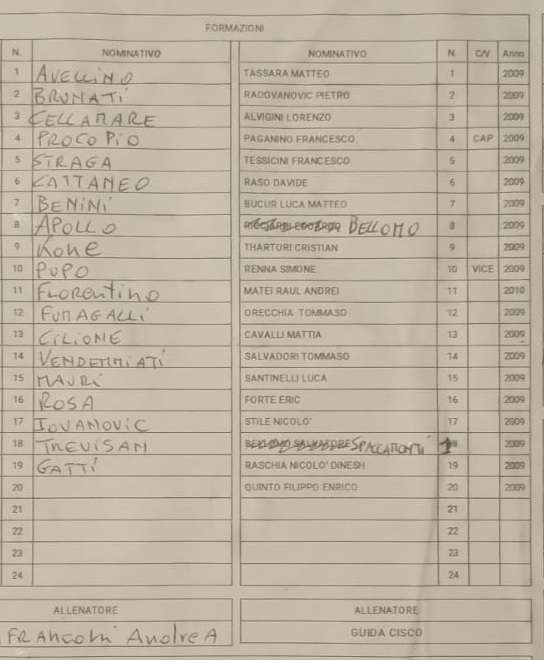 FORMAZIONI
N. NOMINATIVO NOMINATIVO N. C/V Anno
1 AVELLINO TASSARA MATTEO 1 2009
2 BRUNATI RADOVANOVIC PIETRO 2 2009
3 CELLAMARE ALVIGINI LORENZO 3 2009
4 PROCOPIO PAGANINO FRANCESCO 4 CAP 2009
5 STRAGA TESSICINI FRANCESCO 5 2009
6 CATTANEO RASO DAVIDE 6 2009
7 BENINI BUCUR LUCA MATTEO 7 2009
8 APOLLO BELLOMO 8 2009
9 Kone THARTORI CRISTIAN 9 2009
10 PUPO RENNA SIMONE 10 VICE 2009
11 Florentino MATEI RAUL ANDREI 11 2010
12 FUMAGALLI ORECCHIA TOMMASO 12 2009
13 CILIONE CAVALLI MATTIA 13 2009
14 VENDEMMIATI SALVADORI TOMMASO 14 2009
15 MAURI SANTINELLI LUCA 15 2009
16 ROSA FORTE ERIC 16 2009
17 IOVANOVIC STILE NICOLO' 17 2009
18 TREVISAN BELLOMO SALVATORE SPACCAMONTI 1 2009
19 GATTI RASCHIA NICOLO' DINESH 19 2009
20 QUINTO FILIPPO ENRICO 20 2009
21 21
22 22
23 23
24 24
ALLENATORE ALLENATORE
Andrea GUIDA CISCO